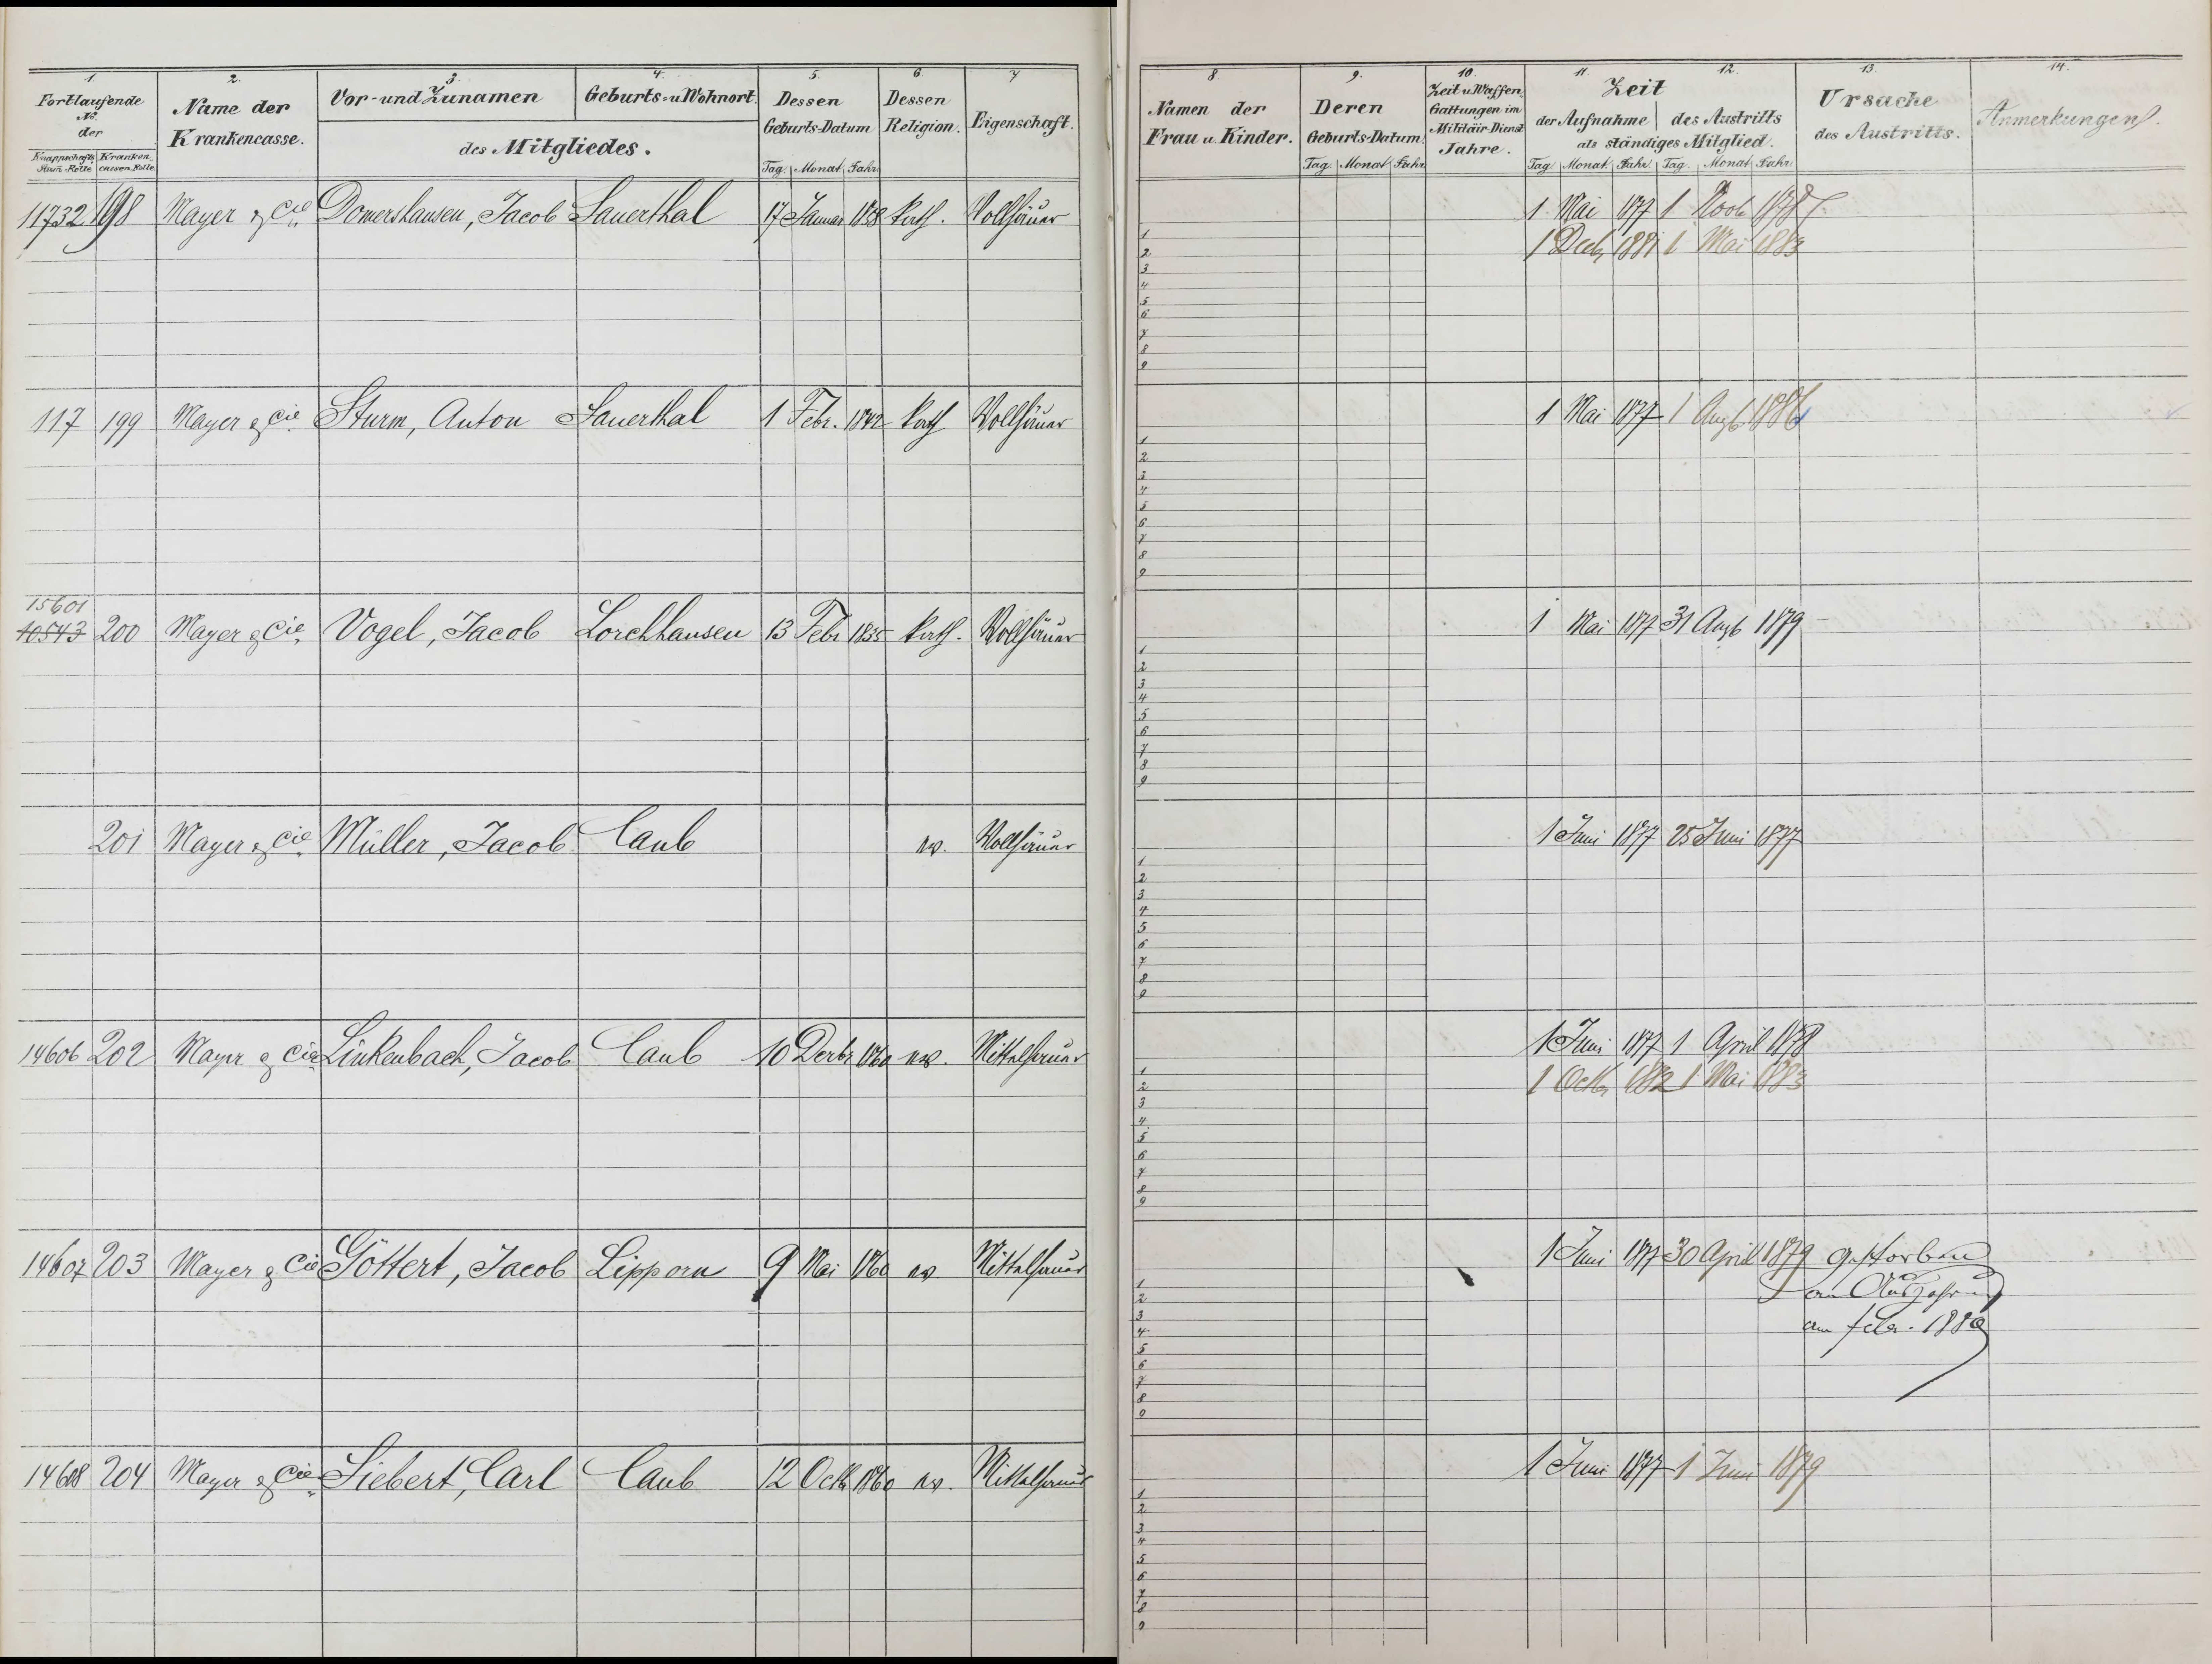 1. 2. 3. 4. 5. 6. 7
Fortlaufende No. der
Knappschafts Stam-Rolle Krankencassen-Rolle
Name der Krankencasse.
Vor- und Zunamen Geburts- u. Wohnort.
des Mitgliedes.
Dessen Geburts-Datum
Tag. Monat Jahr
Dessen Religion.
Eigenschaft.
11732 198 Mayer & Cie Domershausen, Jacob Sauerthal 17 Januar 1838 kath. Vollhäuer
117 199 Mayer & Cie Sturm, Anton Sauerthal 1 Febr. 1842 kath Vollhäuer
15601
10543 200 Mayer & Cie Vogel, Jacob Lorchhausen 13 Febr 1835 kath. Vollhäuer
201 Mayer & Cie Müller, Jacob Caub ev. Vollhäuer
14606 202 Mayer & Cie Linkenbach, Jacob Caub 10 Decbr 1860 ev. Mittelhäuer
14607 203 Mayer & Cie Göttert, Jacob Lipporn 9 Mai 1860 ev. Mittelhäuer
14608 204 Mayer & Cie Siebert, Carl Caub 12 Octb 1860 ev. Mittelhäuer
8. 9. 10. 11. 12. 13. 14.
Namen der Frau u. Kinder.
Deren Geburts-Datum.
Tag Monat Jahr
Zeit u. Waffen Gattungen im Militair-Dienst Jahre.
Zeit
der Aufnahme des Austritts
als ständiges Mitglied.
Tag. Monat Jahr Tag. Monat Jahr
Ursache des Austritts.
Anmerkungen.
1 Mai 1877 1 1878
1 Decb. 1881 1 Mai 1883
1
2
3
4
5
6
7
8
9
1 Mai 1877 1 Augt 1886
1
2
3
4
5
6
7
8
9
1 Mai 1877 31 Augt 1879
1
2
3
4
5
6
7
8
9
1 Juni 1877 25 Juni 1877
1
2
3
4
5
6
7
8
9
1 Juni 1877 1 April 1878
1 Octb. 1882 1 Mai 1883
1
2
3
4
5
6
7
8
9
1 Juni 1877 30 April 1879 gestorben
an
am Febr. 1880
1
2
3
4
5
6
7
8
9
1 Juni 1877 1 Juni 1879
1
2
3
4
5
6
7
8
9